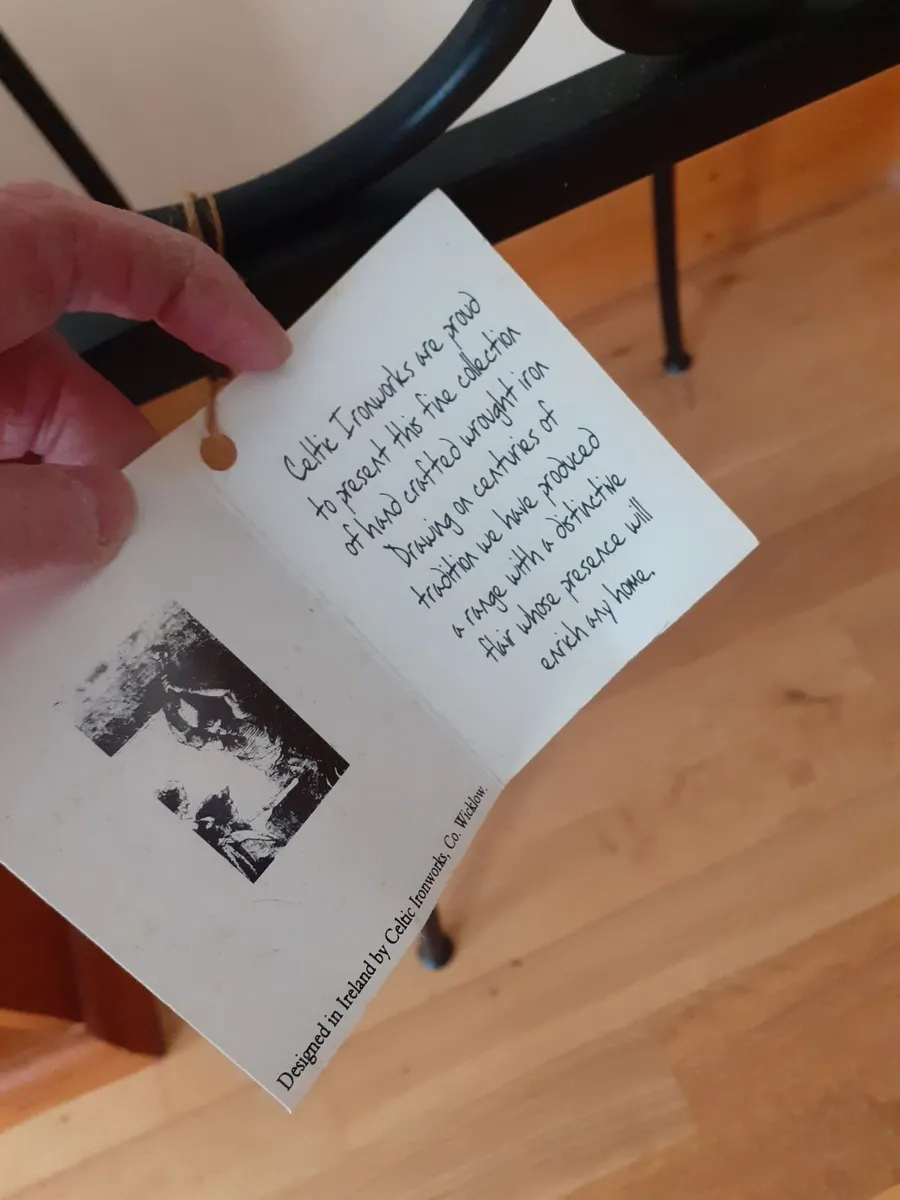 Celtic Ironworks are proud
to present this fine collection
of hand crafted wrought iron
Drawing on centuries of
tradition we have produced
a range with a distinctive
flair whose presence will
enrich any home.
Designed in Ireland by Celtic Ironworks, Co. Wicklow.